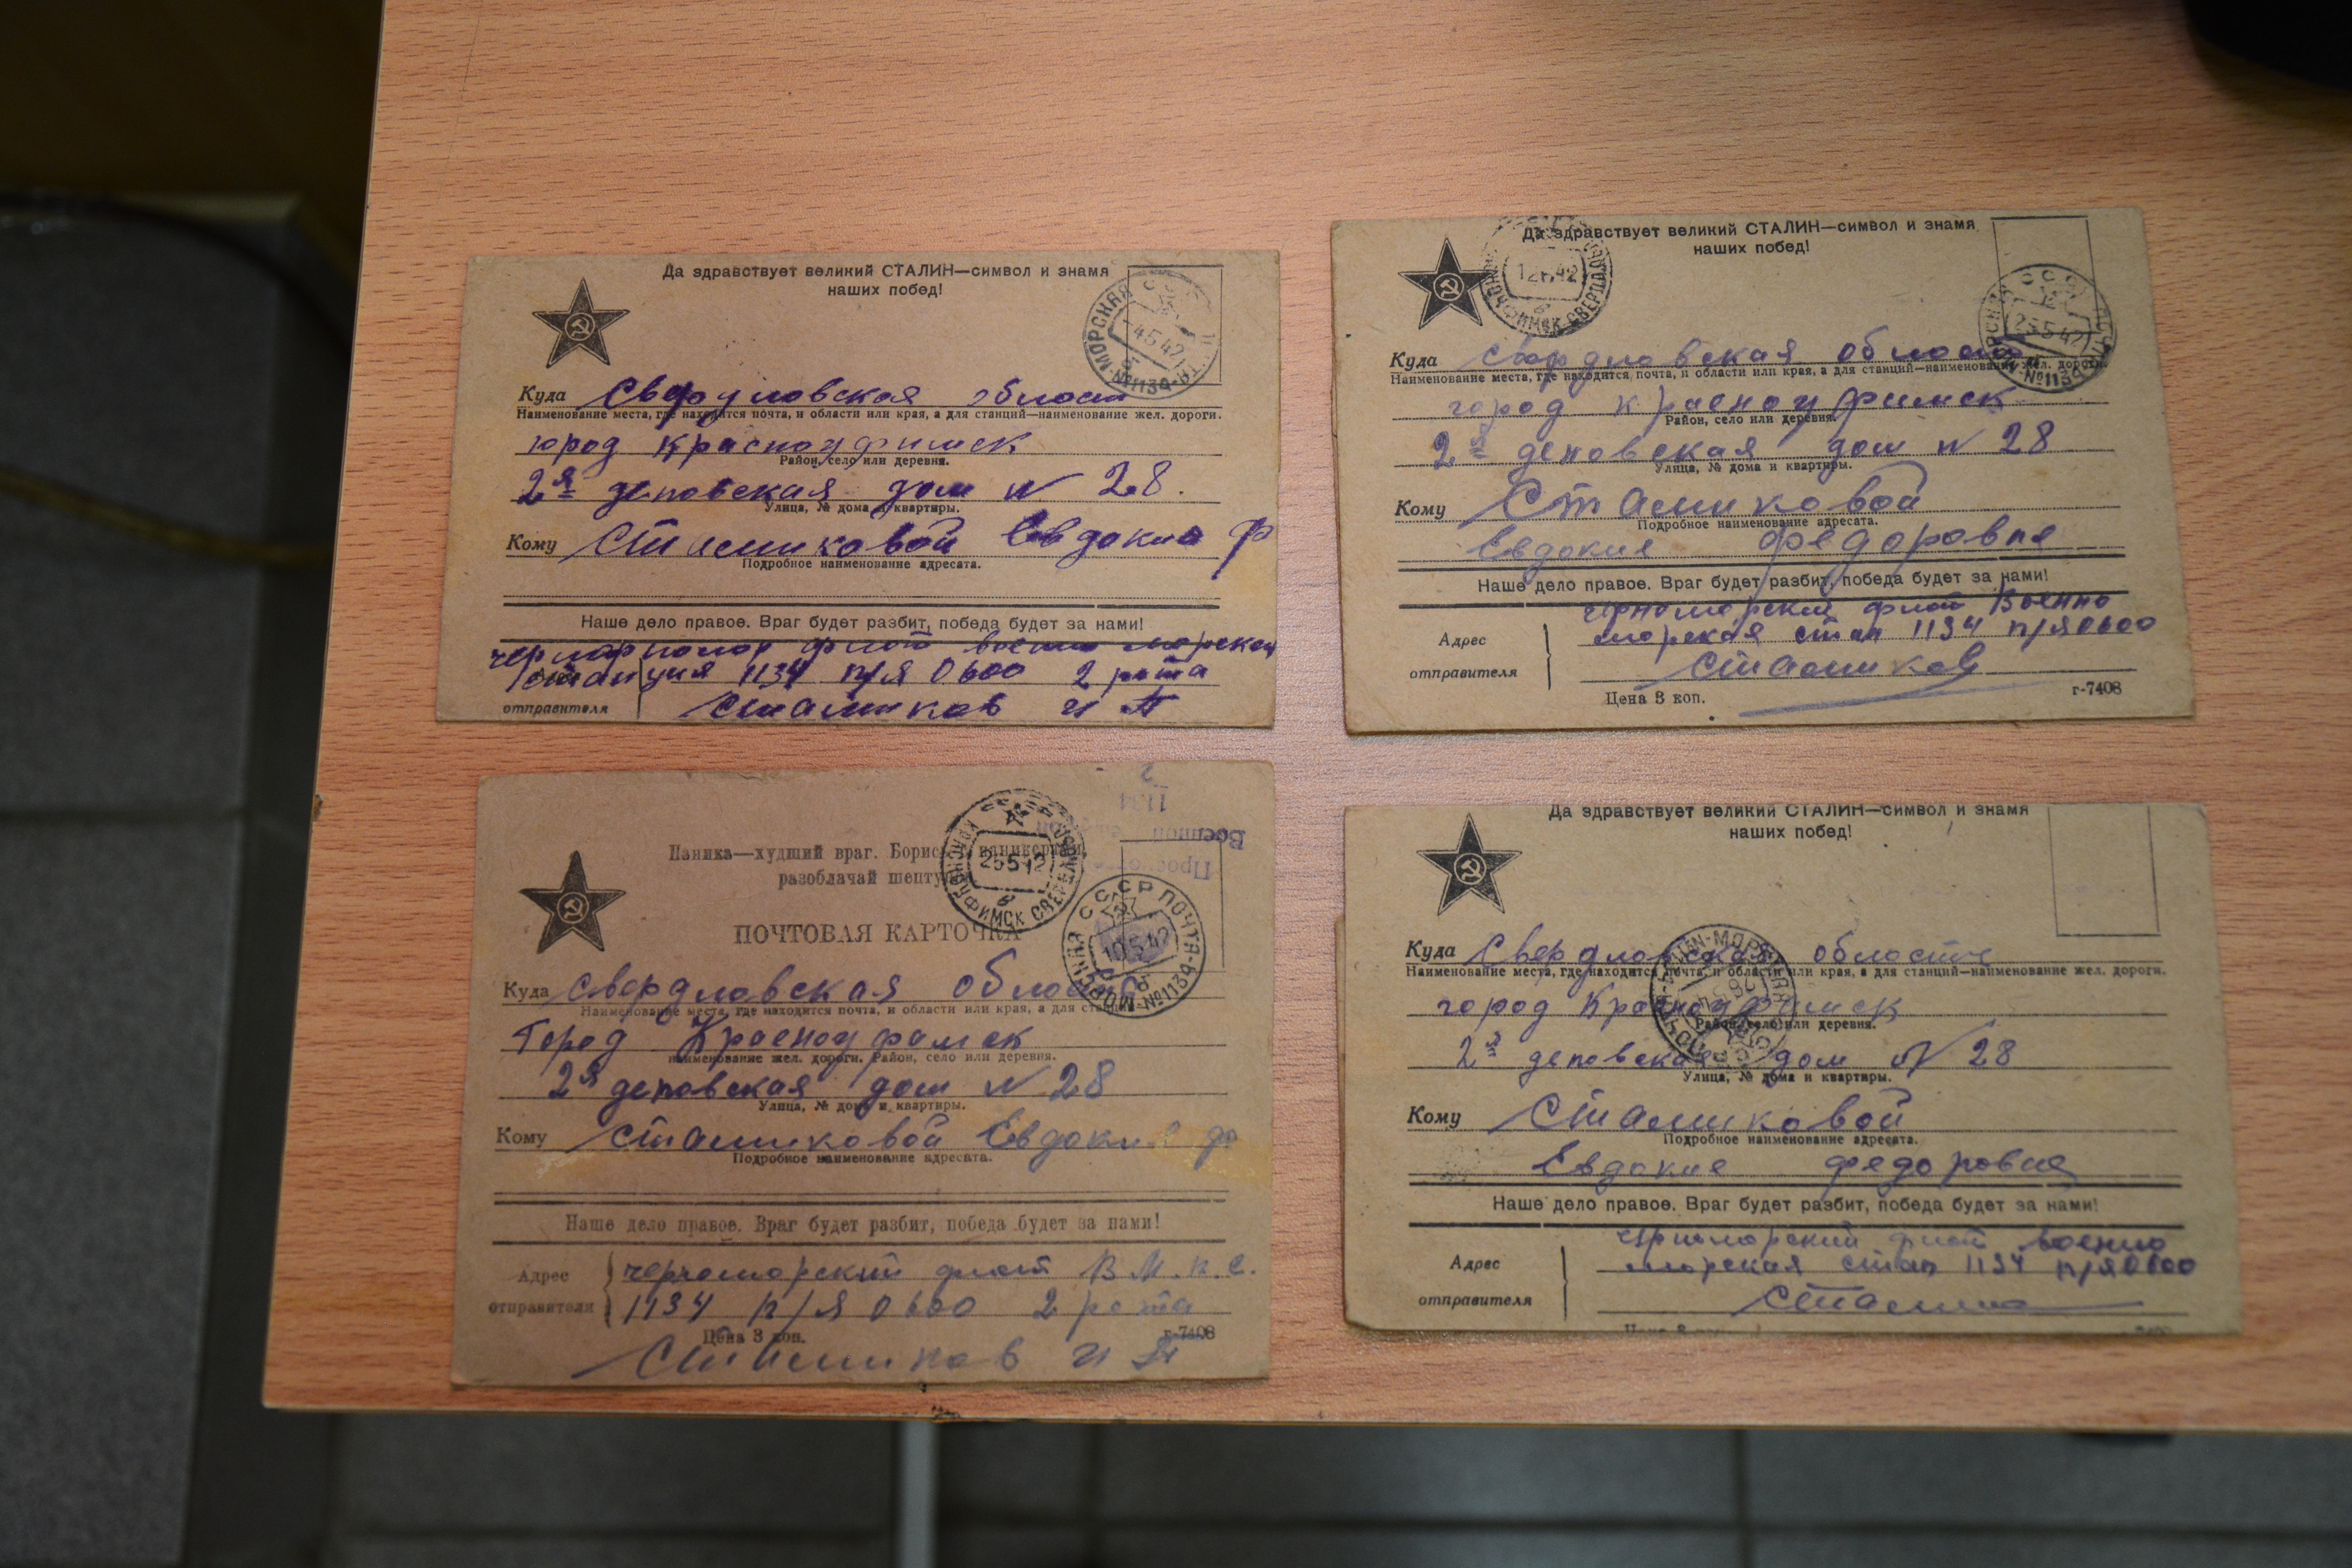 Да здравствует великий СТАЛИН—символ и знамя
наших побед!
МОРСКАЯ
4 5 42
№1134
Куда Свердловская област
Наименование места, где находится почта, и области или края, а для станций—наименование жел. дороги.
город Красноуфимск
Район, село или деревня.
2я деповская дом N 28.
Улица, № дома и квартиры.
Кому Стамиковой Евдокие Ф
Подробное наименование адресата.
Наше дело правое. Враг будет разбит, победа будет за нами!
флот военно морская
станция 1134 п/я 0600 2 рота
отправителя Стамиков И П
Да здравствует великий СТАЛИН—символ и знамя
наших побед!
КРАСНОУФИМСК СВЕРДЛОВ
42
25 5 42
№1134
Куда Свердловская область
Наименование места, где находится почта, и области или края, а для станций—наименование жел. дороги.
город Красноуфимск
Район, село или деревня.
2я деповская дом N 28
Улица, № дома и квартиры.
Кому Стамиковой
Подробное наименование адресата.
Евдокие Федоровне
Наше дело правое. Враг будет разбит, победа будет за нами!
Черноморский флот Военно
Адрес морская стан 1134 п/я 0600
отправителя Стамиков
Цена 3 коп. г-7408
1134
Военной
Паника—худший враг. Борись с паникерами,
разоблачай шептунов
КРАСНОУФИМСК СВЕРДЛОВ
25 5 42
ПОЧТОВАЯ КАРТОЧКА
СССР ПОЧТА
10 5 42
МОРСКАЯ №1134
Куда Свердловская область
Наименование места, где находится почта, и области или края, а для станций
Город Красноуфимск
наименование жел. дороги. Район, село или деревня.
2я деповская дом N 28
Улица, № дома и квартиры.
Кому Стамиковой Евдокие
Подробное наименование адресата.
Наше дело правое. Враг будет разбит, победа будет за нами!
Адрес Черноморский флот В М. П. С.
отправителя 1134 п/я 0600 2 рота
Цена 3 коп. г-7408
Стамиков И П
Да здравствует великий СТАЛИН—символ и знамя
наших побед!
Куда Свердловская область
Наименование места, где находится почта, и области или края, а для станций—наименование жел. дороги.
город Красноуфимск
Район, село или деревня.
2я деповская дом N 28
Улица, № дома и квартиры.
Кому Стамиковой
Подробное наименование адресата.
Евдокие Федоровне
Наше дело правое. Враг будет разбит, победа будет за нами!
Черноморский флот военно
Адрес морская стан 1134 п/я 0600
отправителя